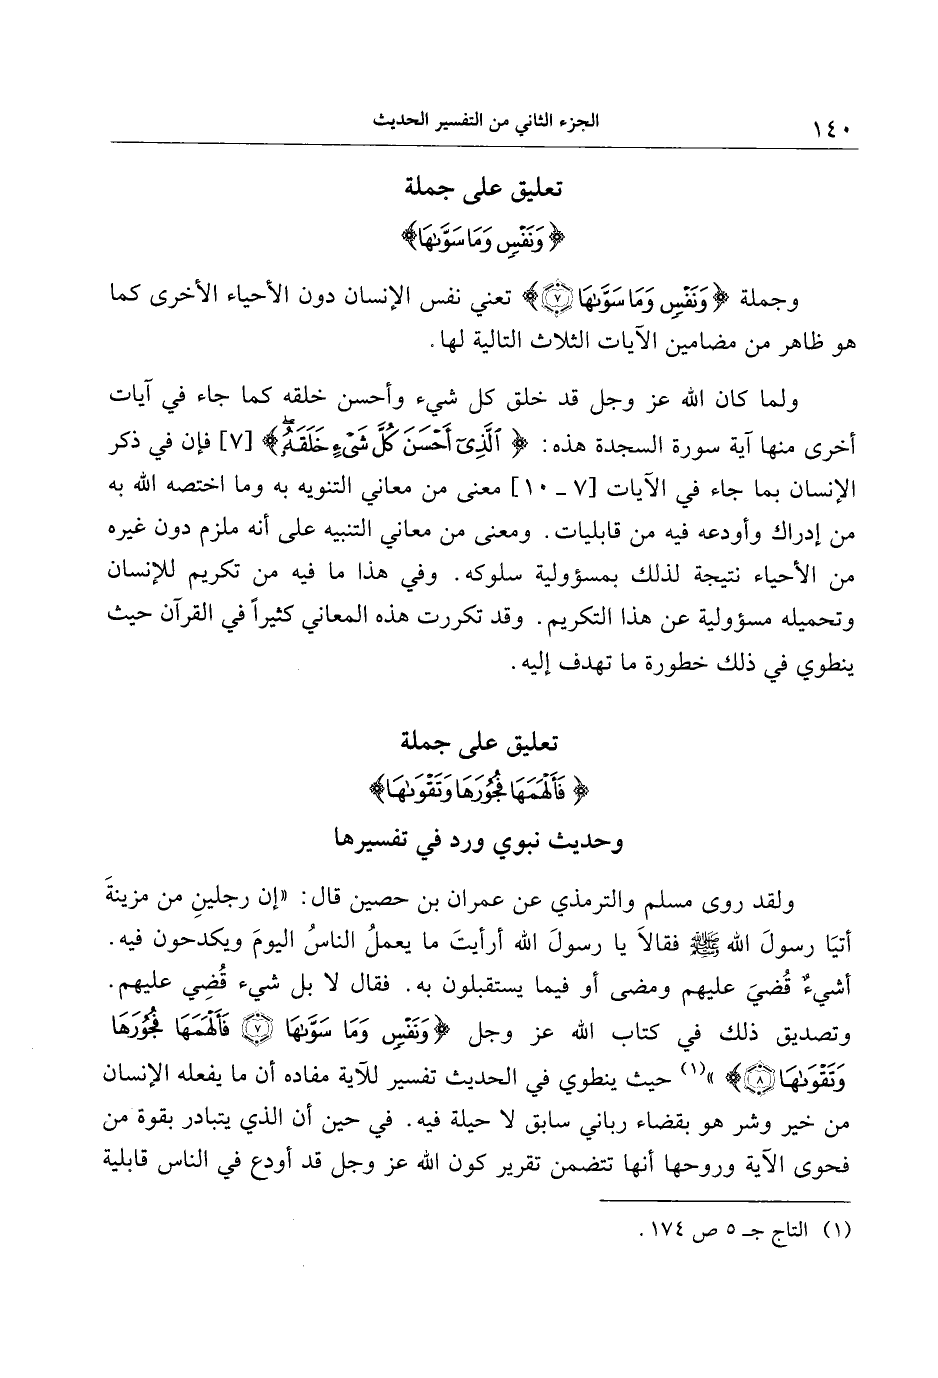 ١٤٠ الجزء الثاني من التفسير الحديث
تعليق على جملة
﴿وَنَفْسٍ وَمَا سَوَّىٰهَا﴾
وجملة ﴿وَنَفْسٍ وَمَا سَوَّىٰهَا ٧﴾ تعني نفس الإنسان دون الأحياء الأخرى كما
هو ظاهر من مضامين الآيات الثلاث التالية لها.
ولما كان الله عز وجل قد خلق كل شيء وأحسن خلقه كما جاء في آيات
أخرى منها آية سورة السجدة هذه: ﴿ٱلَّذِىٓ أَحْسَنَ كُلَّ شَىْءٍ خَلَقَهُۥۖ﴾ [٧] فإن في ذكر
الإنسان بما جاء في الآيات [٧ ـ ١٠] معنى من معاني التنويه به وما اختصه الله به
من إدراك وأودعه فيه من قابليات. ومعنى من معاني التنبيه على أنه ملزم دون غيره
من الأحياء نتيجة لذلك بمسؤولية سلوكه. وفي هذا ما فيه من تكريم للإنسان
وتحميله مسؤولية عن هذا التكريم. وقد تكررت هذه المعاني كثيراً في القرآن حيث
ينطوي في ذلك خطورة ما تهدف إليه.
تعليق على جملة
﴿فَأَلْهَمَهَا فُجُورَهَا وَتَقْوَىٰهَا﴾
وحديث نبوي ورد في تفسيرها
ولقد روى مسلم والترمذي عن عمران بن حصين قال: «إن رجلينِ من مزينةَ
أتيَا رسولَ الله ﷺ فقالاَ يا رسولَ الله أرأيتَ ما يعملُ الناسُ اليومَ ويكدحون فيه.
أشيءٌ قُضيَ عليهم ومضى أو فيما يستقبلون به. فقال لا بل شيء قُضِي عليهم.
وتصديق ذلك في كتاب الله عز وجل ﴿وَنَفْسٍ وَمَا سَوَّىٰهَا ٧ فَأَلْهَمَهَا فُجُورَهَا
وَتَقْوَىٰهَا ٨﴾»(١) حيث ينطوي في الحديث تفسير للآية مفاده أن ما يفعله الإنسان
من خير وشر هو بقضاء رباني سابق لا حيلة فيه. في حين أن الذي يتبادر بقوة من
فحوى الآية وروحها أنها تتضمن تقرير كون الله عز وجل قد أودع في الناس قابلية
(١) التاج جـ ٥ ص ١٧٤.